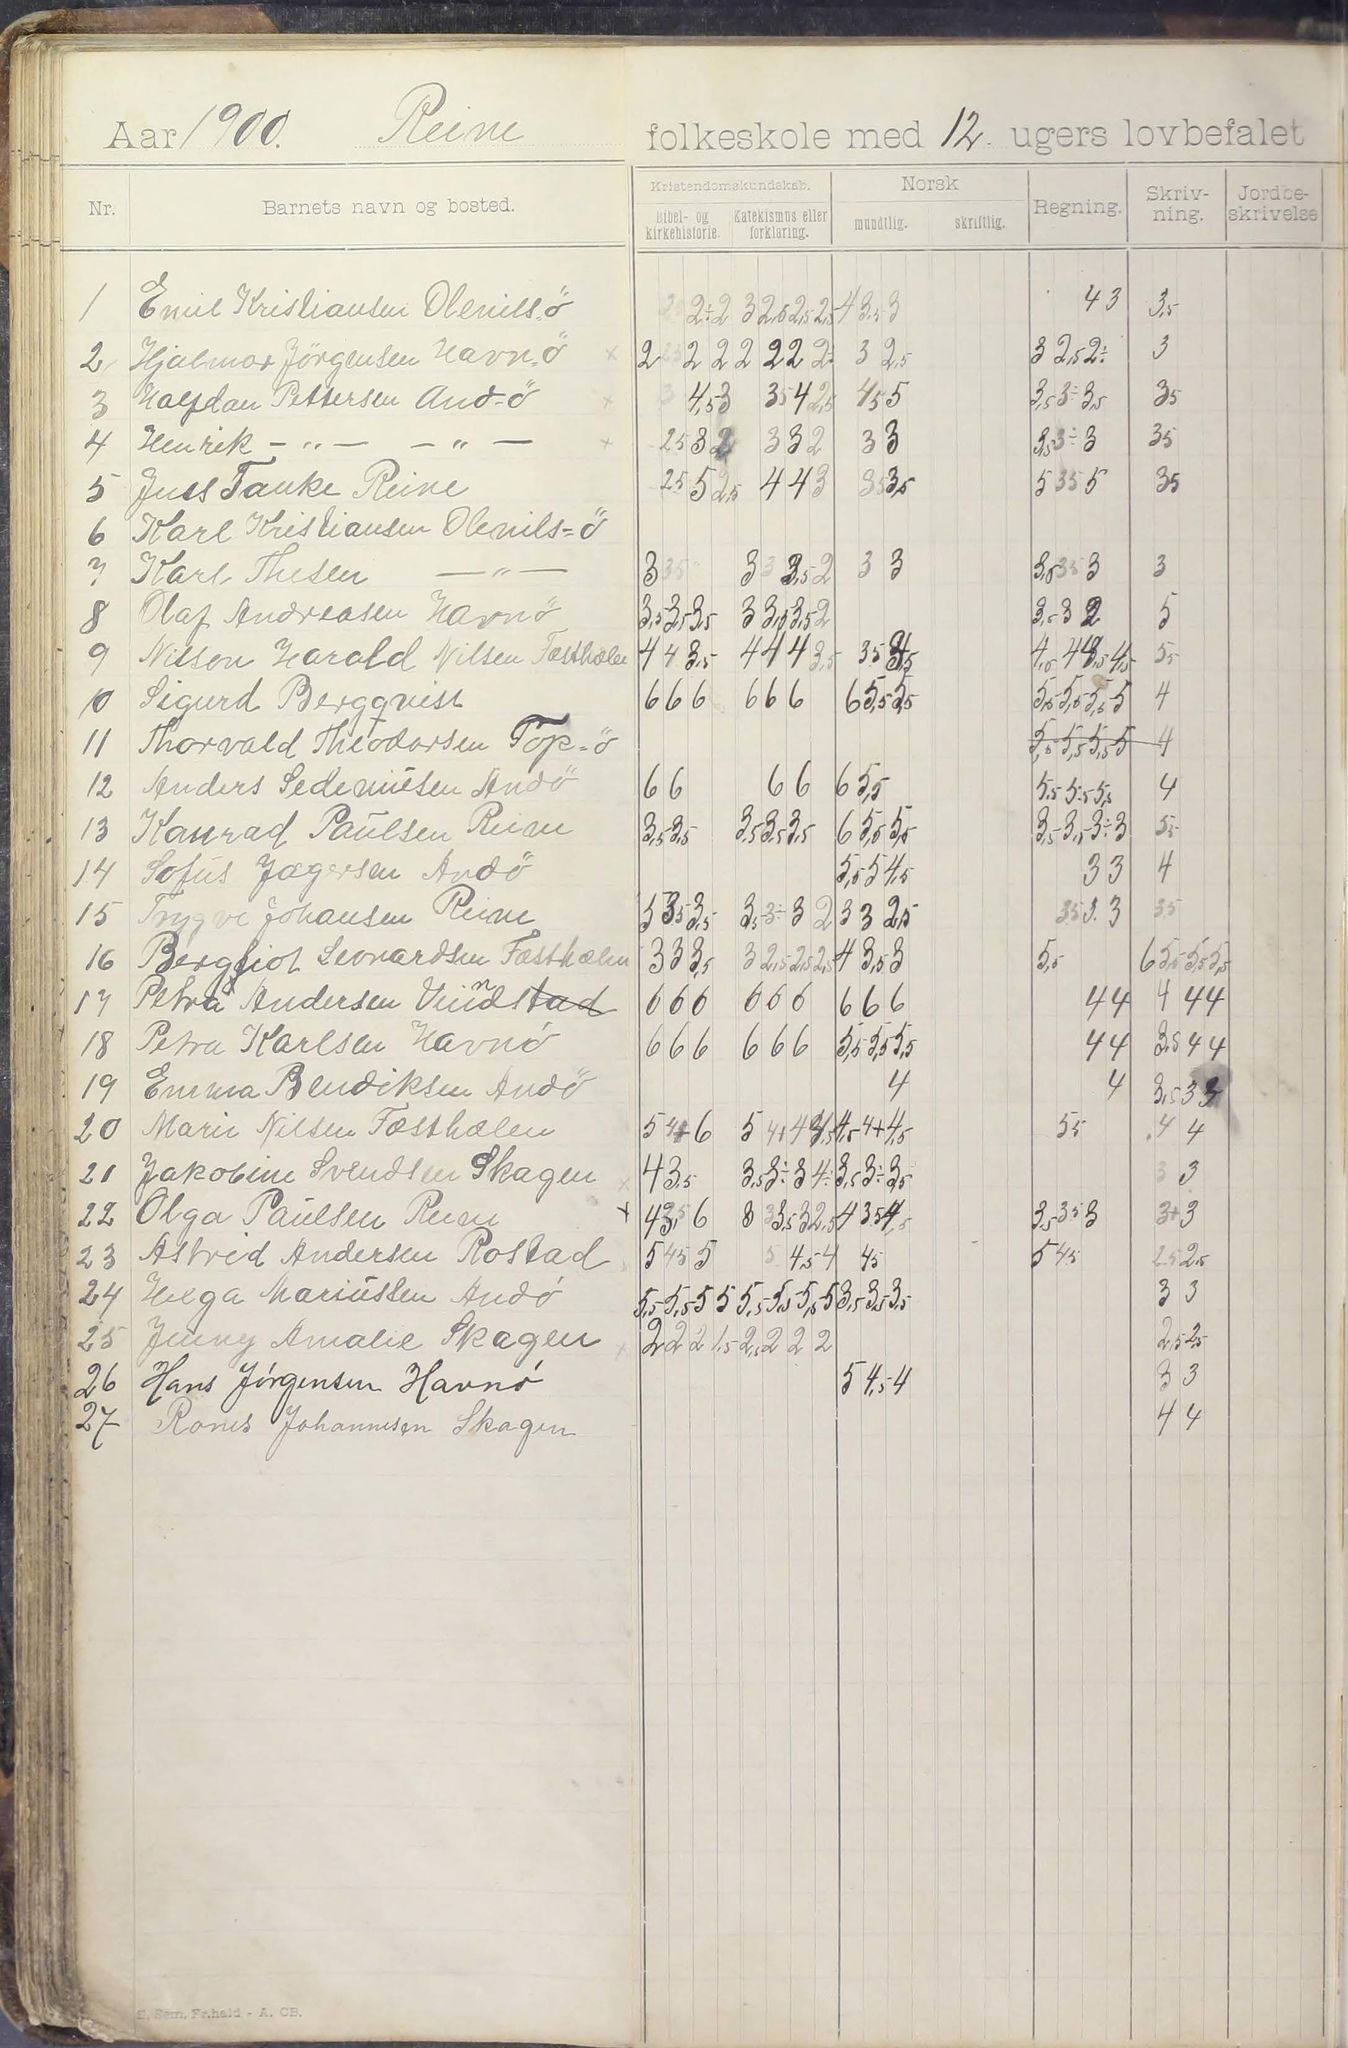 Aar 1900. Reine folkeskole med 12. ugers lovbefalet
Nr. Barnets navn og bosted. Kristendomskundskab. Norsk Regning. Skriv-ning. Jordbe-skrivelse
Bibel- og kirkehistorie. Katekismus eller forklaring. mundtlig. skriftlig.
1 Emil Kristiansen Olenils-ö 2÷ 2 3 2,5 2,5 2,5 4 3,5 3 4 3 3,5
2 Hjalmar Jörgensen Havn-ö × 2 2,5 2 2 2 2 2 2÷ 3 2,5 3 2,5 2÷ 3
3 Halfdan Pettersen And-ö × 3 4,5 3 3,5 4 2,5 4,5 5 3,5 3÷ 3,5 3,5
4 Henrik — " — — " — × 2,5 3 2 3 3 2 3 3 3,5 3÷ 3 3,5
5 Juss Tanke Reine 2,5 5 2,5 4 4 3 3,5 3,5 5 3,5 5 3,5
6 Karl Kristiansen Olenils=ö
7 Karl Thesen — " — 3 3,5 3 3 3,5 2 3 3 3,5 3,5 3 3
8 Olaf Andreasen Havnö 3,5 3,5 3,5 3 3,5 3,5 2 3,5 3 2 5
9 Nilson Harald Nilsen Fæsthælen 4 4 3,5 4 4 4 3,5 3,5 4,5 4 5,5
10 Sigurd Bergqvist 6 6 6 6 6 6 6 5,5 5,5 5,5 5,5 5,5 5 4
11 Thorvald Theodorsen Top-ö 5,5 5,5 5,5 5 4
12 Anders Sedeniusen Andö 6 6 6 6 6 5,5 5,5 5,5 5,5 4
13 Konrad Paulsen Reine 3,5 3,5 3,5 3,5 3,5 6 5,5 5,5 3,5 3,5 3÷ 3 5,5
14 Sofus Jægersen Andö 5,5 5 4,5 3 3 4
15 Trygve Johansen Reine 3 3,5 3,5 3,5 3÷ 3 2 3 3 2,5 3,5 3. 3 3,5
16 Bergljot Leonardsen Fæsthælen 3 3 3,5 3 2,5 2,5 2,5 4 3,5 3 5,5 6 5,5 5,5 5,5
17 Petra Andersen Vindstad 6 6 6 6 6 6 6 6 6 4 4 4 4 4
18 Petra Karlsen Havnö 6 6 6 6 6 6 5,5 5,5 5,5 4 4 3,5 4 4
19 Emma Bendiksen Andö 4 4 3,5 3 3
20 Marie Nilsen Fæsthælen 5 4+ 6 5 4+ 4 4,5 4,5 4+ 4,5 5,5 4 4
21 Jakobine Svendsen Skagen × 4 3,5 3,5 3÷ 3 4÷ 3,5 3÷ 3,5 3 3
22 Olga Paulsen Reine × 4 3,5 6 3 3 3,5 3 2,5 4 3,5 4 4,5 3,5 3,5 3 3+ 3
23 Astrid Andersen Rostad 5 4,5 5 5 4,5 4 4,5 5 4,5 2,5 2,5
24 Helga Mariussen Andö 5,5 5,5 5 5 5,5 5,5 5,5 5 3,5 3,5 3,5 3 3
25 Jenny Amalie Skagen × 2 2 2 1,5 2,5 2 2 2 2,5 2,5
26 Hans Jörgensen Havnö 5 4,5 4 3 3
27 Johannesen Skagen 4 4
E. Sem, Fr.hald - A. CB.